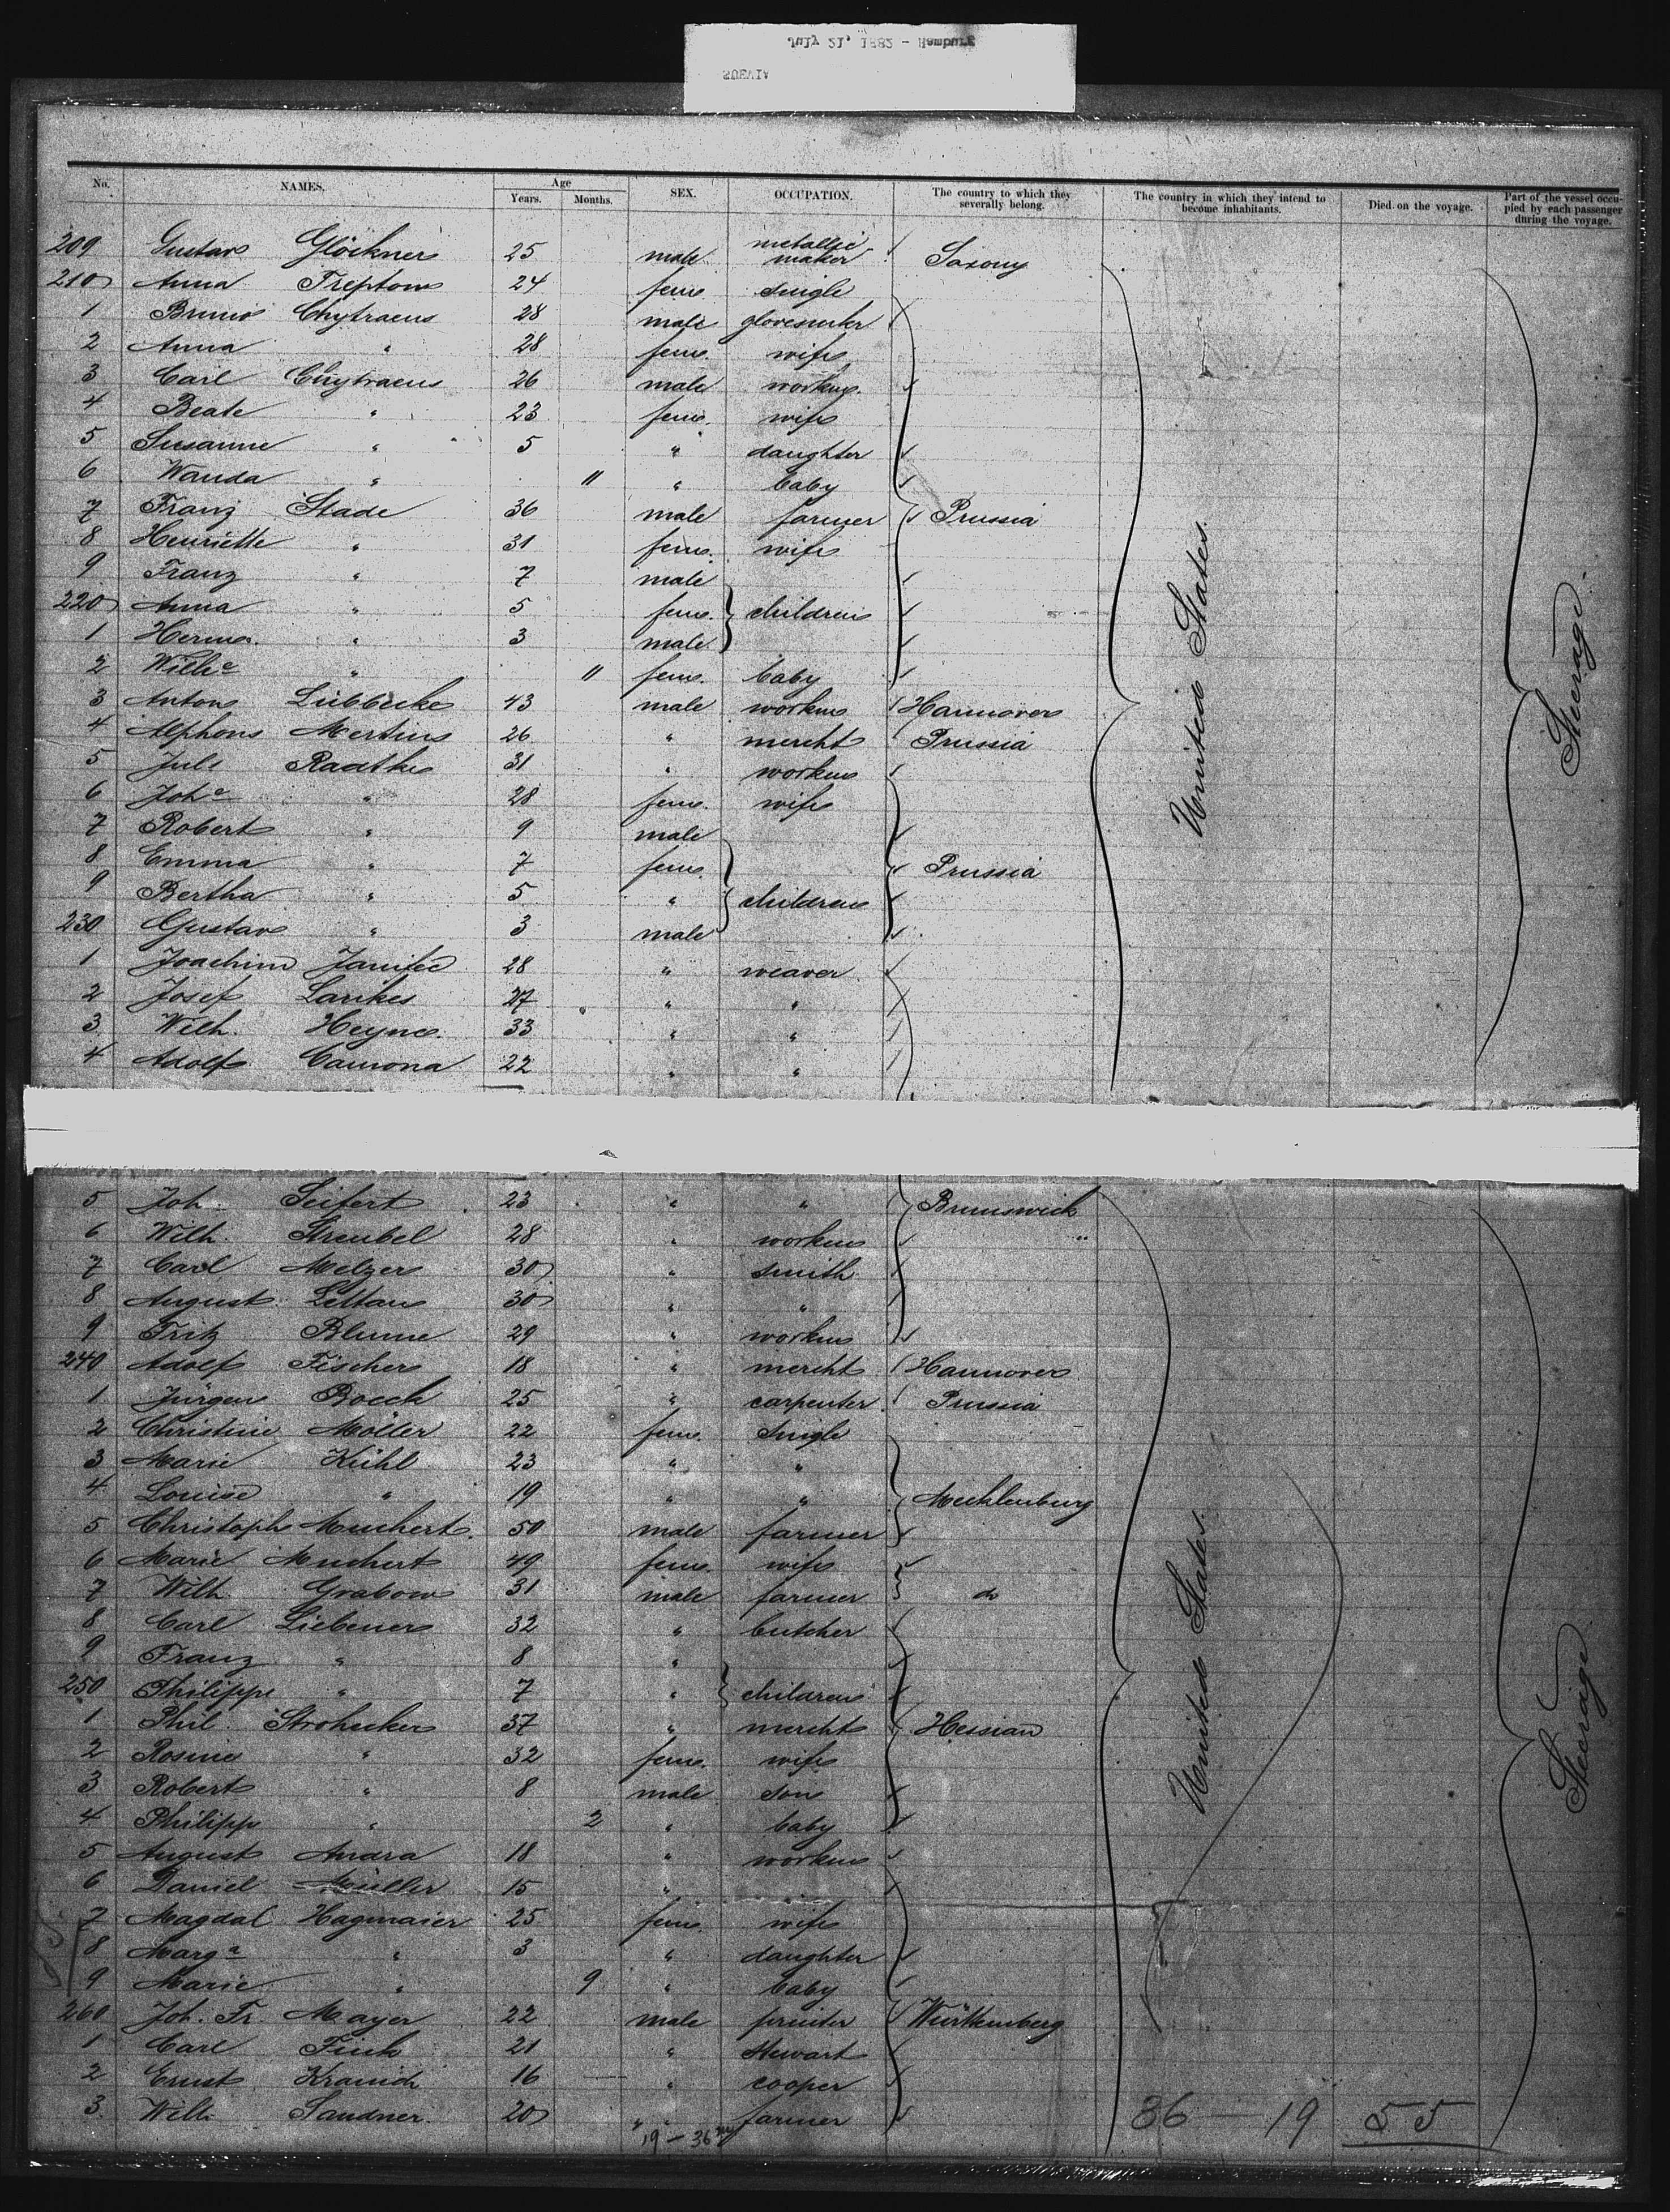 July 21, 1882 - Hamburg
SUEVIA
No. NAMES. Age Years. Months. SEX. OCCUPATION. The country to which they severally belong. The country in which they intend to become inhabitants. Died on the voyage. Part of the vessel occupied by each passenger during the voyage.
209 Gustav Glöckner 25 male metallic maker Saxony
210 Anna Treptow 24 fem. single
1 Bruno Chytraeus 28 male
2 Anna " 28 fem. wife
3 Carl Chytraeus 26 male workm.
4 Beate " 23 fem. wife
5 Susanne " 5 " daughter
6 Wanda " 11 " baby
7 Franz Stade 36 male farmer Prussia
8 Henriette " 31 fem. wife
9 Franz " 7 male
220 Anna " 5 fem. children
1 Herm. " 3 male
2 Wilhe " 11 fem. baby
3 Anton Lübbecke 43 male workm Hannover
4 Alphons Mertins 26 " mercht Prussia
5 Juls Raathe 31 " workm
6 Johe " 28 fem. wife
7 Robert " 9 male
8 Emma " 7 fem. Prussia
9 Bertha " 5 " children
230 Gustav " 3 male
1 Joachim 28 " weaver
2 Josef 27 " "
3 Wilh. Heyne 33 " "
4 Adolf Camona 22 " "
United States.
Steerage.
5 Joh. Seifert 23 " " Brunswick
6 Wilh. Streubel 28 " workm
7 Carl Melzer 30 " smith
8 August Lettau 30 " "
9 Fritz Blume 29 " workm
240 Adolf Fischer 18 " mercht Hannover
1 Jürgen Boeck 25 " carpenter Prussia
2 Christine Möller 22 fem. single
3 Marie Kühl 23 " "
4 Louise " 19 " " Mecklenburg
5 Christoph 50 male farmer
6 Marie 49 fem. wife
7 Wilh. Grabow 31 male farmer do
8 Carl Liebener 32 " butcher
9 Franz " 8 "
250 Philippe " 7 " children
1 Phil. Strohecker 37 " mercht Hessian
2 Rosine " 32 fem. wife
3 Robert " 8 male son
4 Philipp " 2 " baby
5 August Andra 18 " workm
6 Daniel Müller 15 " "
7 Magdal Hagmaier 25 fem. wife
8 Marga " 3 " daughter
9 Marie " 9 " baby
260 Joh. Fr. Mayer 22 male printer Württemberg
1 Carl Fink 21 " Stewart
2 Ernst Kranich 16 " cooper
3 Wilh. Sandner 20 " farmer
United States.
Steerage
19 - 36
36 - 19 55